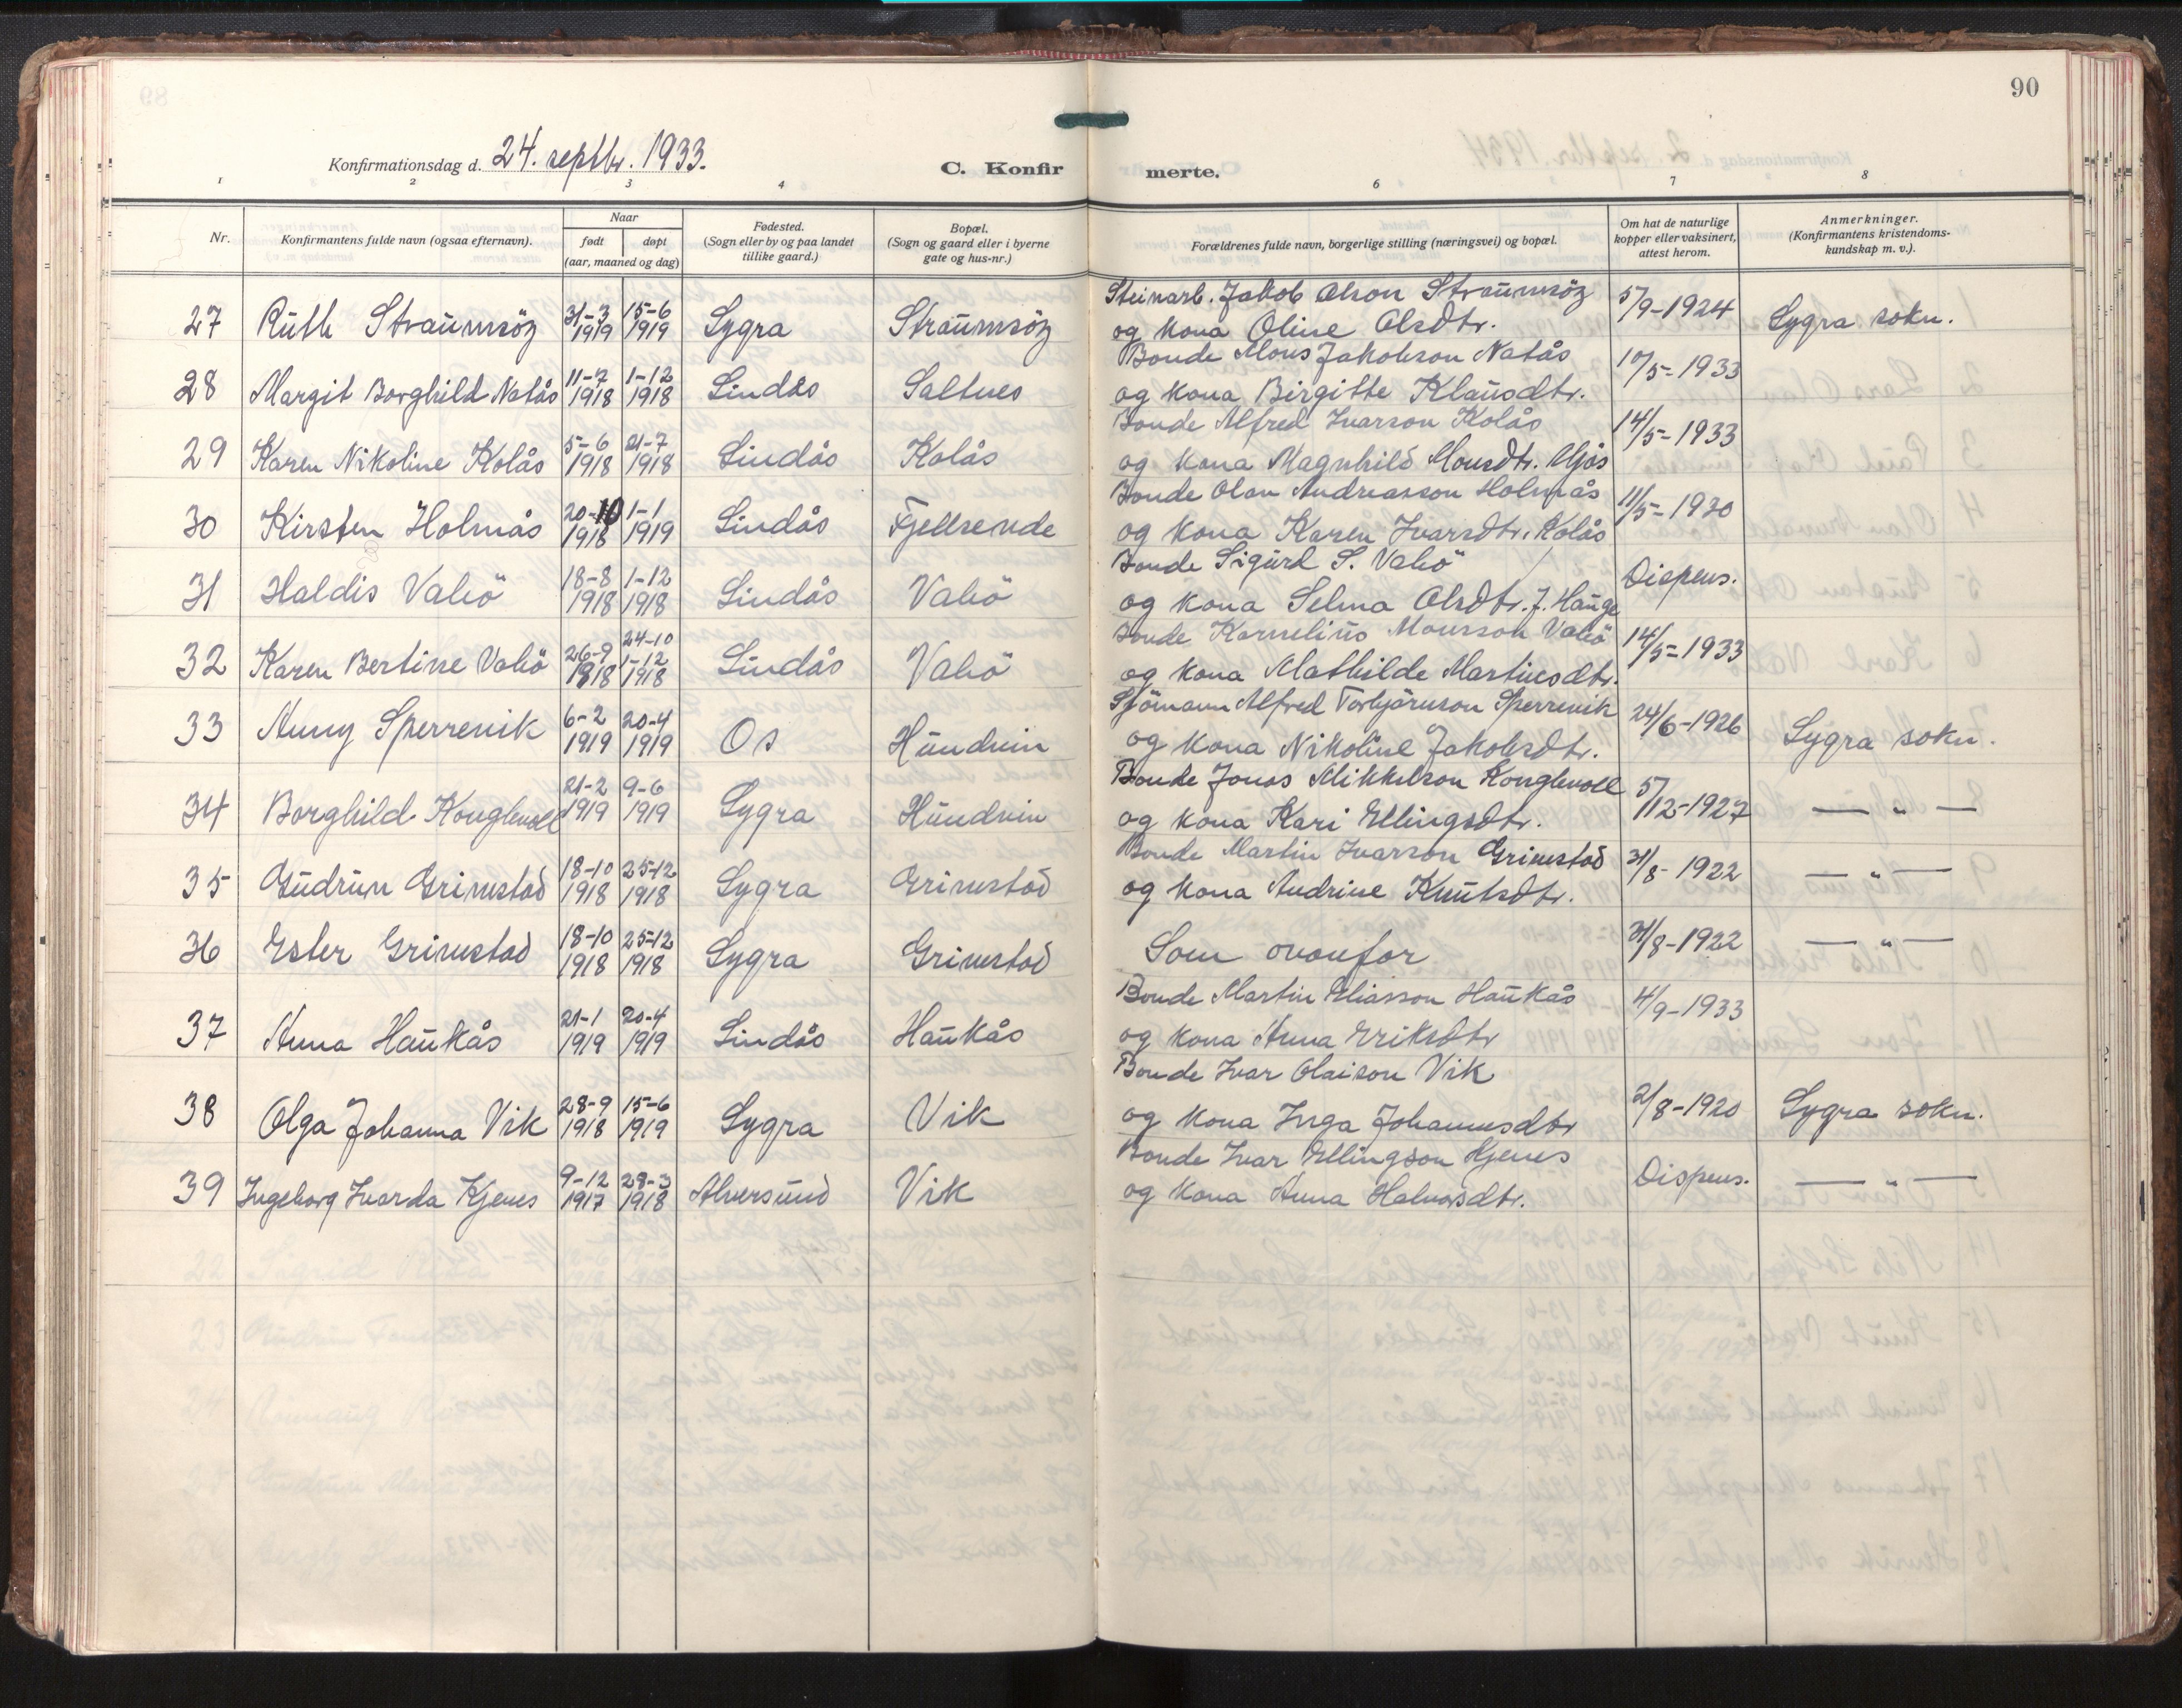 90
Konfirmationsdag d. 24. septbr. 1933.
C. Konfirmerte.
1 2 3 4 5 6 7 8
Nr.
Konfirmantens fulde navn (ogsaa efternavn).
Naar
født døpt
(aar, maaned og dag)
Fødested.
(Sogn eller by og paa landet
tillike gaard.)
Bopæl.
(Sogn og gaard eller i byerne
gate og hus-nr.)
Forældrenes fulde navn, borgerlige stilling (næringsvei) og bopæl.
Om hat de naturlige
kopper eller vaksinert,
attest herom.
Anmerkninger.
(Konfirmantens kristendoms-
kundskap m. v.).
27 Ruth Straumsöy 31-3 1919 15-6 1919 Lygra Straumsöy Steinarb. Jakob Olson Straumsöy
og kona Oline Olsdtr. 5/9-1924 Lygra sokn.
28 Margit Borghild Natås 11-7 1918 1-12 1918 Lindås Saltnes Bonde Mons Jakobson Natås
og kona Birgitte Klausdtr. 10/5-1933
29 Karen Nikoline Kolås 5-6 1918 21-7 1918 Lindås Kolås Bonde Alfred Ivarson Kolås
og kona Magnhild Monsdtr. Mjös 14/5-1933
30 Kirsten Holmås 20-10 1918 1-1 1919 Lindås Fjellsende Bonde Olan Andreasson Holmås
og kona Karen Ivarsdtr. Kolås 11/5-1930
31 Haldis Valiö 18-8 1918 1-12 1918 Lindås Valiö Bonde Sigurd S. Valiö
og kona Selma Olsdtr. f. Hauge Dispens.
32 Karen Bertine Valiö 26-9 1918 24-10 1-12 1918 Lindås Valiö Bonde Kornelius Monsson Valiö
og kona Mathilde Martinsdtr. 14/5-1933
33 Anny Sperrevik 6-2 1919 20-4 1919 Os Hundvin Sjömann Alfred Torbjörnson Sperrevik
og kona Nikoline Jakobsdtr. 24/6-1926 Lygra sokn.
34 Borghild Konglevoll 21-2 1919 9-6 1919 Lygra Hundvin Bonde Jonas Mikkelson Konglevoll
og kona Kari Ellingsdtr. 5/12-1927 — " —
35 Gudrun Grimstad 18-10 1918 25-12 1918 Lygra Grimstad Bonde Martin Ivarson Grimstad
og kona Andrine Knutsdtr. 31/8-1922 — " —
36 Ester Grimstad 18-10 1918 25-12 1918 Lygra Grimstad Som ovanfor 31/8-1922 — " —
37 Anna Haukås 21-1 1919 20-4 1919 Lindås Haukås Bonde Martin Eliasson Haukås
og kona Anna Eriksdtr 4/9-1933
38 Olga Johanna Vik 28-9 1918 15-6 1919 Lygra Vik Bonde Ivar Olaison Vik
og kona Inga Johannesdtr 2/8-1920 Lygra sokn.
39 Ingeborg Ivarda Kjenes 9-12 1917 28-3 1918 Alversund Vik Bonde Ivar Ellingson Kjenes
og kona Anna Halvorsdtr. Dispens. — " —